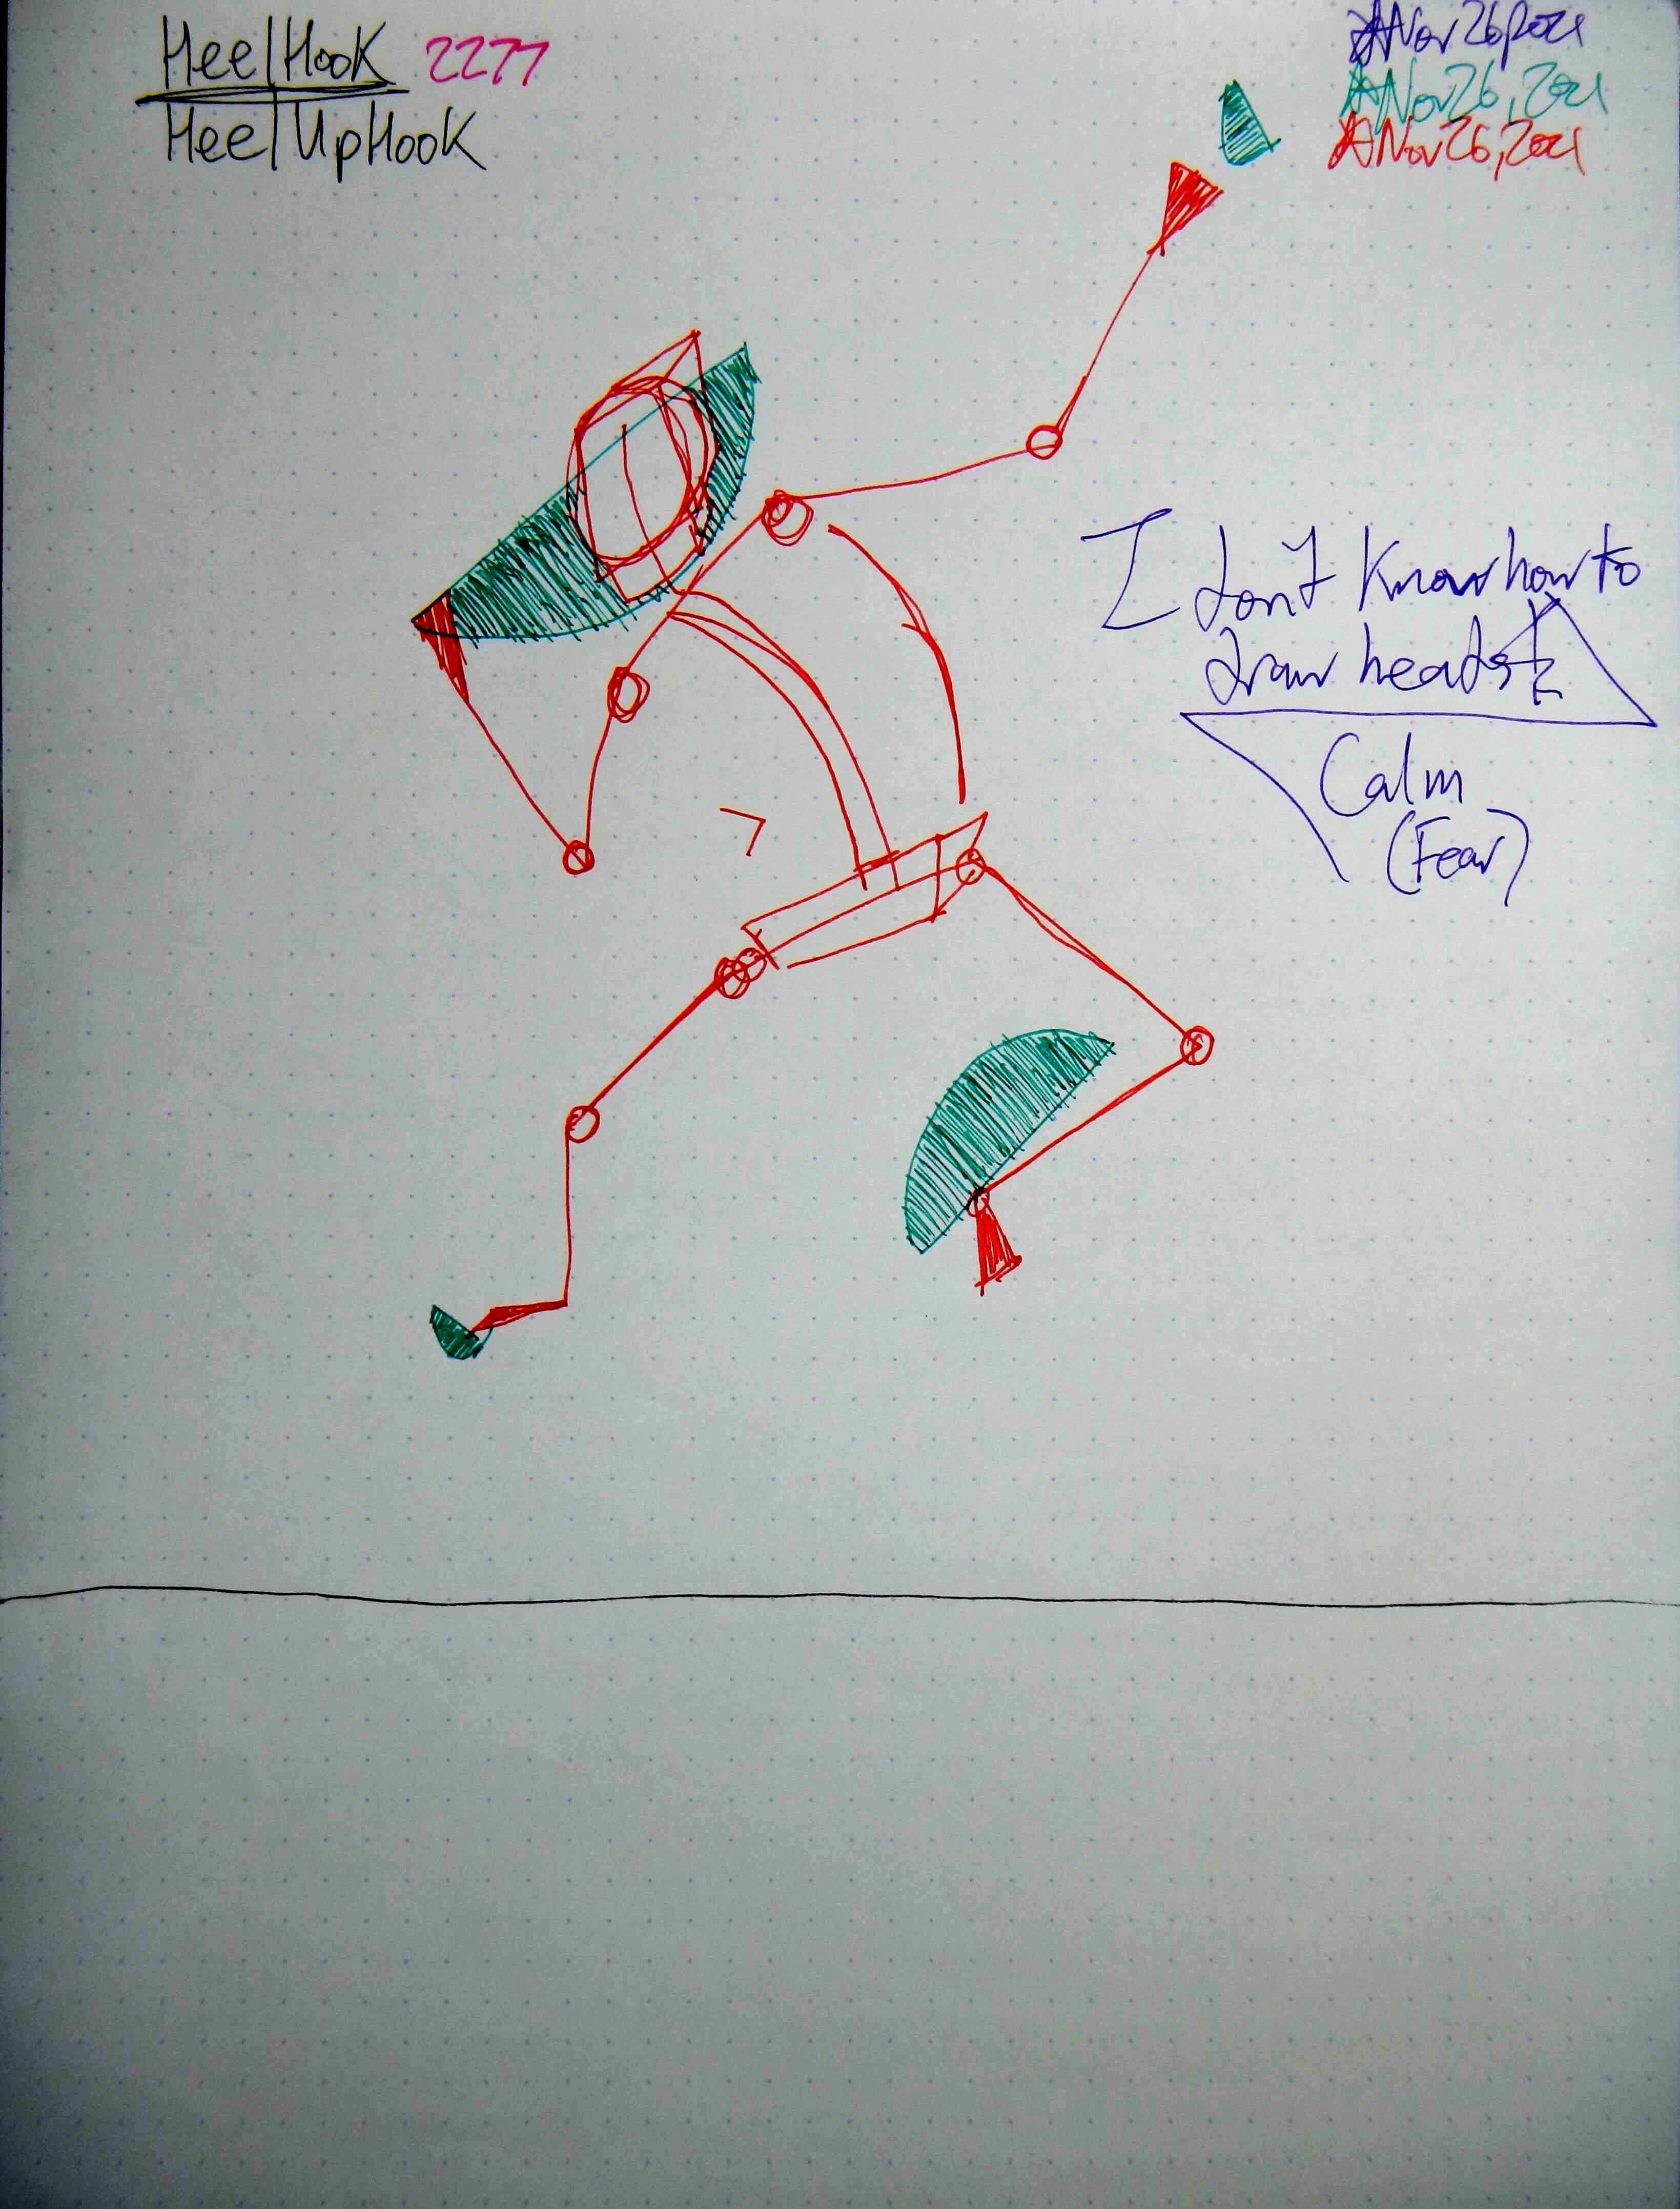 HeelHook 2277
HeelUpHook
Nov 26, 2021
Nov 26, 2021
Nov 26, 2021
I don't Know how to
draw heads
Calm
(Fear)